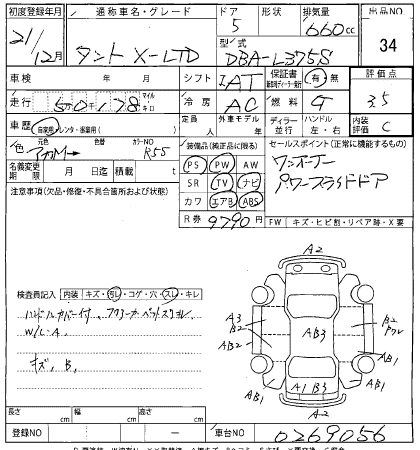 初度登録年月 通称車名・グレード ドア 形状 排気量 出品NO
21/12月 タント X-LTD 5 660cc 34
型式 DBA-L375S
車検 年 月 シフト IAT 保証書 有 無 評価点
走行 5万0千178 マイル キロ 冷房 AC 燃料 G 3.5
車歴 自家用・レンタ・事業用( ) 定員 人 外車モデル 年 ディーラー 並行 ハンドル 左・右 内装評価 C
色 元色 色替 カラーNO R55
装備品(純正品に限る) セールスポイント(正常に機能するもの)
名義変更期限 月 日迄 積載 t PS PW AW ワンオーナー
注意事項(欠品・修復・不具合箇所および状態) SR TV ナビ パワースライドドア
カワ エアB ABS
R券 9790円 FW キズ・ヒビ割・リペア跡・X要
A2
検査員記入 内装 キズ・汚レ・コゲ・穴・スレ・キレ
ハンドルカバー付
A3 B2 AB3 B2
W/L・A AB2
キズ、B、 AB1 A1 B3 AB1
A2
長さ cm 幅 cm 高さ cm
登録NO ― 車台NO 0269056